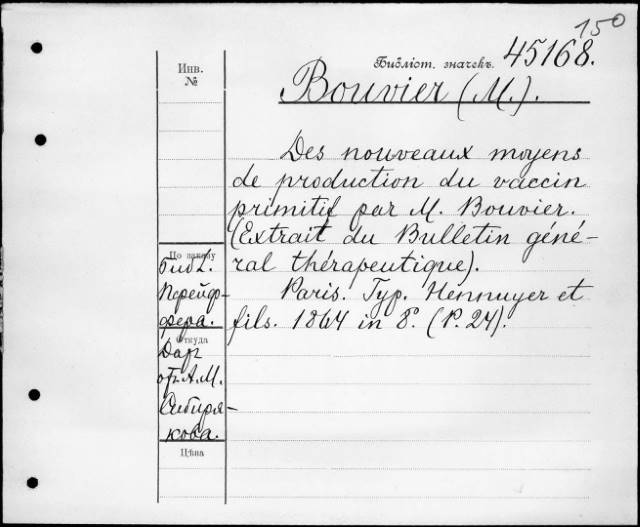 150
Библіот. значекъ. 45168.
Инв.
№
Bouvier (M.).
Des nouveaux moyens
de production du vaccin
primitif par M. Bouvier.
(Extrait du Bulletin géné-
ral thérapeutique).
Paris. Typ. Hennuyer et
fils. 1864 in 8º. (P. 24).
По закону
Библ.
Перейф-
фера.
Откуда
Дар
от А.М.
Сибиря-
кова.
Цѣна